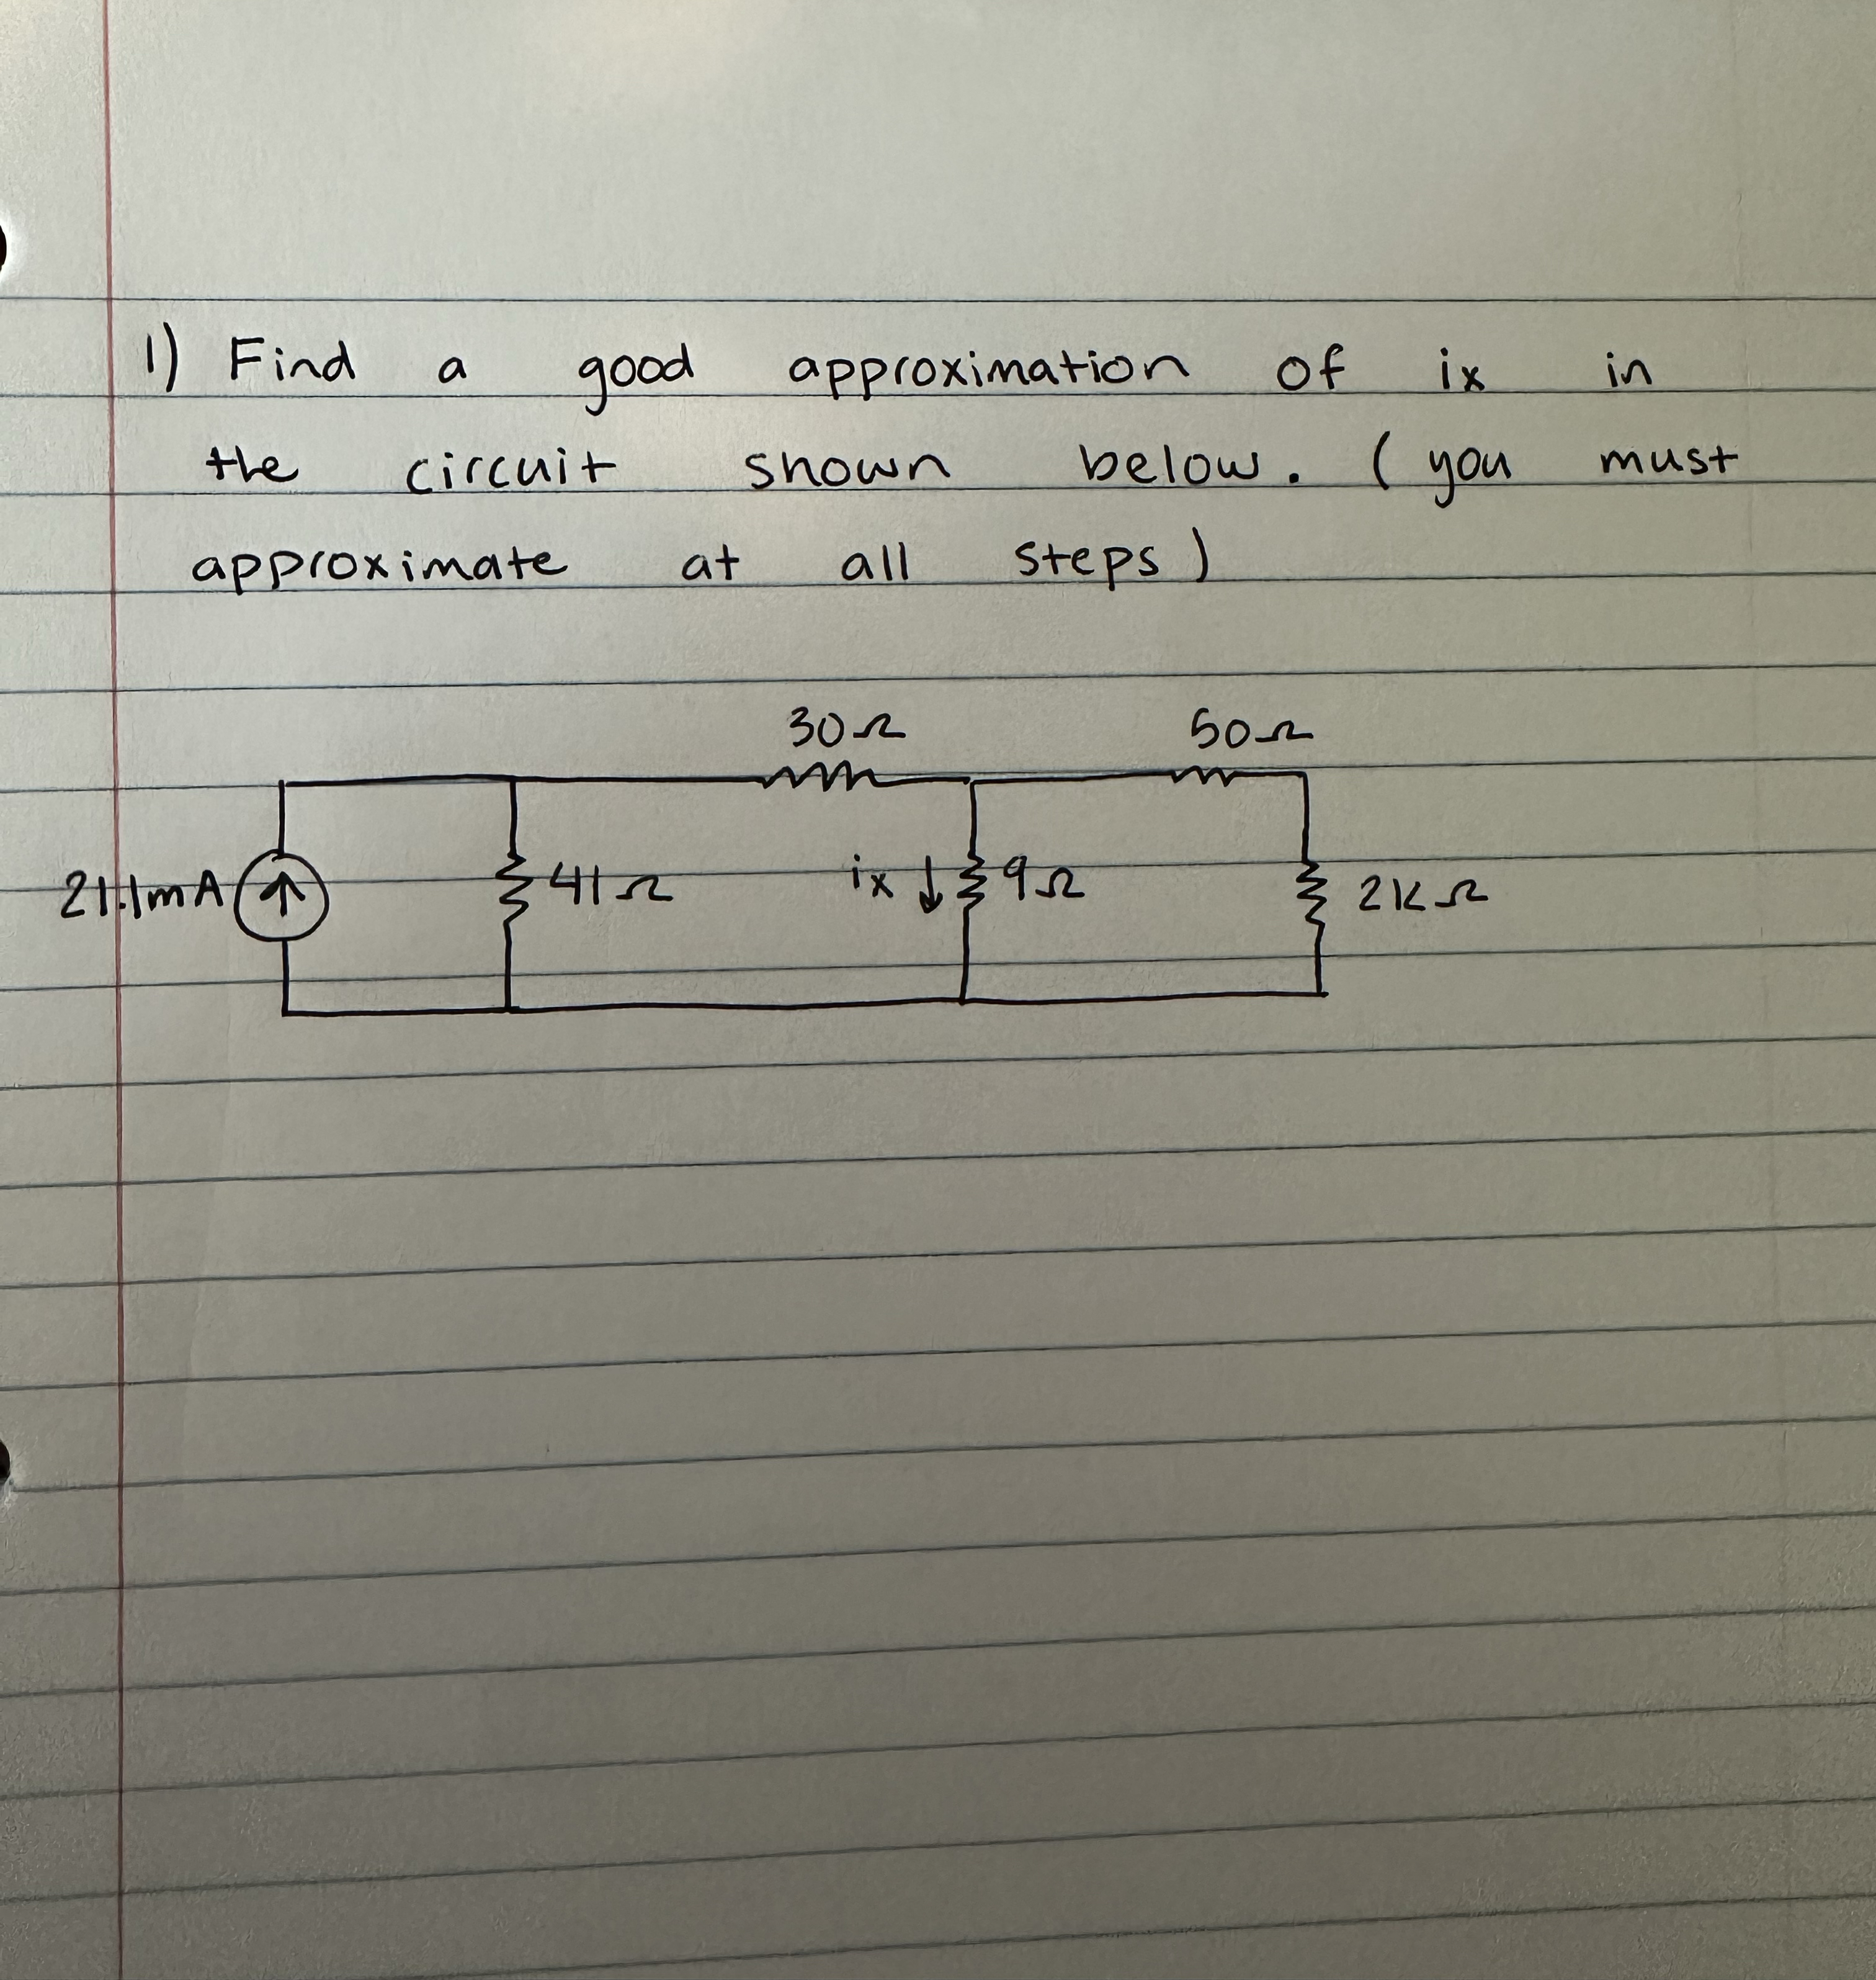 1) Find a good approximation of ix in
the circuit shown below. (you must
approximate at all steps)
30Ω 50Ω
21.1mA 41Ω ix 9Ω 2kΩ